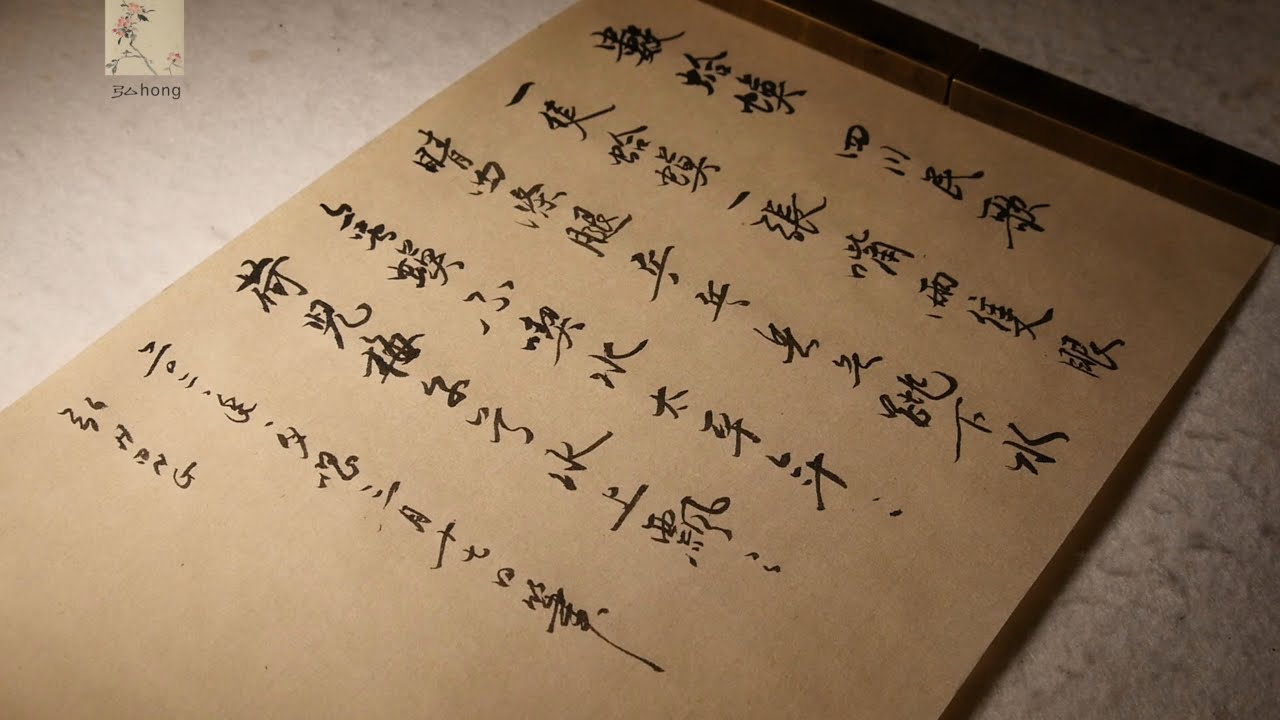 弘hong
數蛤蟆 四川民歌
一隻蛤蟆一張嘴兩隻眼
睛四條腿乒乓跳下水
蛤蟆不喫水太平年
荷兒梅子兮水上飄
二〇二一年辛丑二月十七日筆